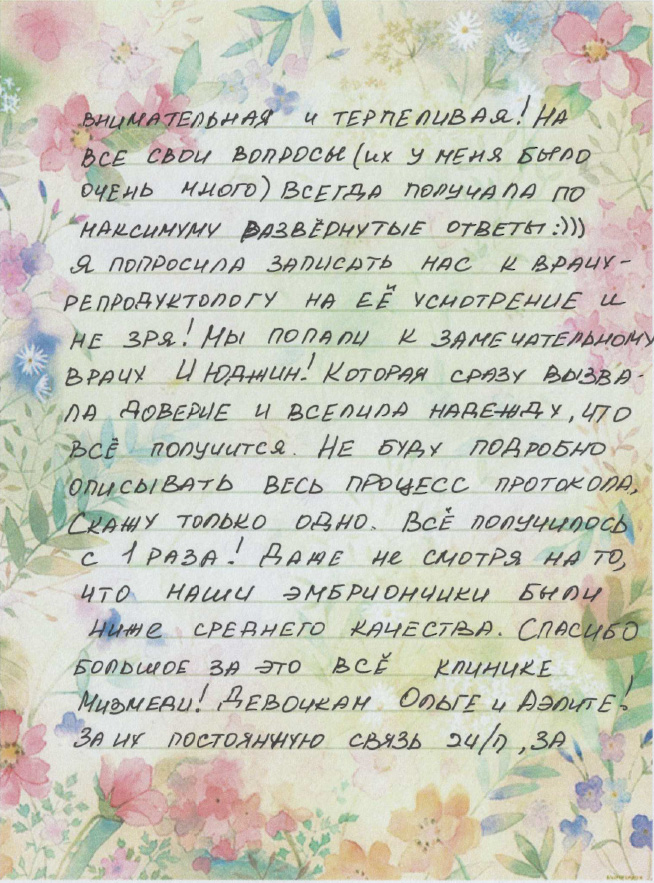 внимательная и терпеливая! На
все свои вопросы (их у меня было
очень много) всегда получала по
максимуму развёрнутые ответы :)))
Я попросила записать нас к врачу-
репродуктологу на её усмотрение и
не зря! Мы попали к замечательному
врачу И Юджин! Которая сразу вызва-
ла доверие и вселила надежду, что
всё получится. Не буду подробно
описывать весь процесс протокола,
Скажу только одно. Всё получилось
с 1 раза! Даже не смотря на то,
что наши эмбриончики были
ниже среднего качества. Спасибо
большое за это всё клинике
Мизмеди! Девочкам Ольге и Аэлите!
За их постоянную связь 24/7, за